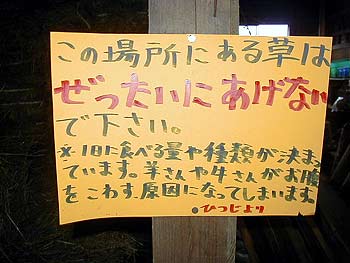 この場所にある草は
ぜったいにあげない
で下さい。
※1日に食べる量や種類が決まっ
ています。羊さんや牛さんがお腹
をこわす原因になってしまいます。
ひつじより